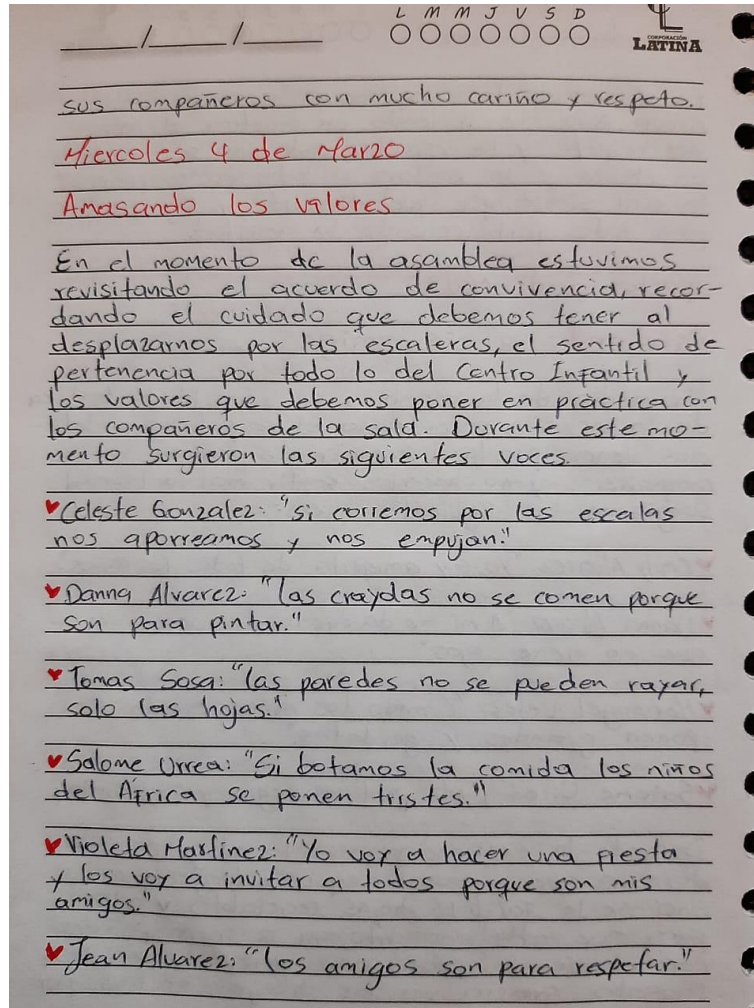 L M M J V S D
CORPORACIÓN
LATINA
sus compañeros con mucho cariño y respeto.
Miercoles 4 de Marzo
Amasando los valores
En el momento de la asamblea estuvimos
revisitando el acuerdo de convivencia, recor-
dando el cuidado que debemos tener al
desplazarnos por las escaleras, el sentido de
pertenencia por todo lo del Centro Infantil y
los valores que debemos poner en práctica con
los compañeros de la sala. Durante este mo-
mento surgieron las siguientes voces.
♥Celeste Gonzalez: "si corremos por las escalas
nos aporreamos y nos empujan."
♥Danna Alvarez: "las craydas no se comen porque
son para pintar."
♥Tomas Sosa: "las paredes no se pueden rayar,
solo las hojas."
♥Salome Urrea: "Si botamos la comida los niños
del África se ponen tristes."
♥Violeta Martinez: "Yo voy a hacer una fiesta
y los voy a invitar a todos porque son mis
amigos."
♥Jean Alvarez: "los amigos son para respetar."